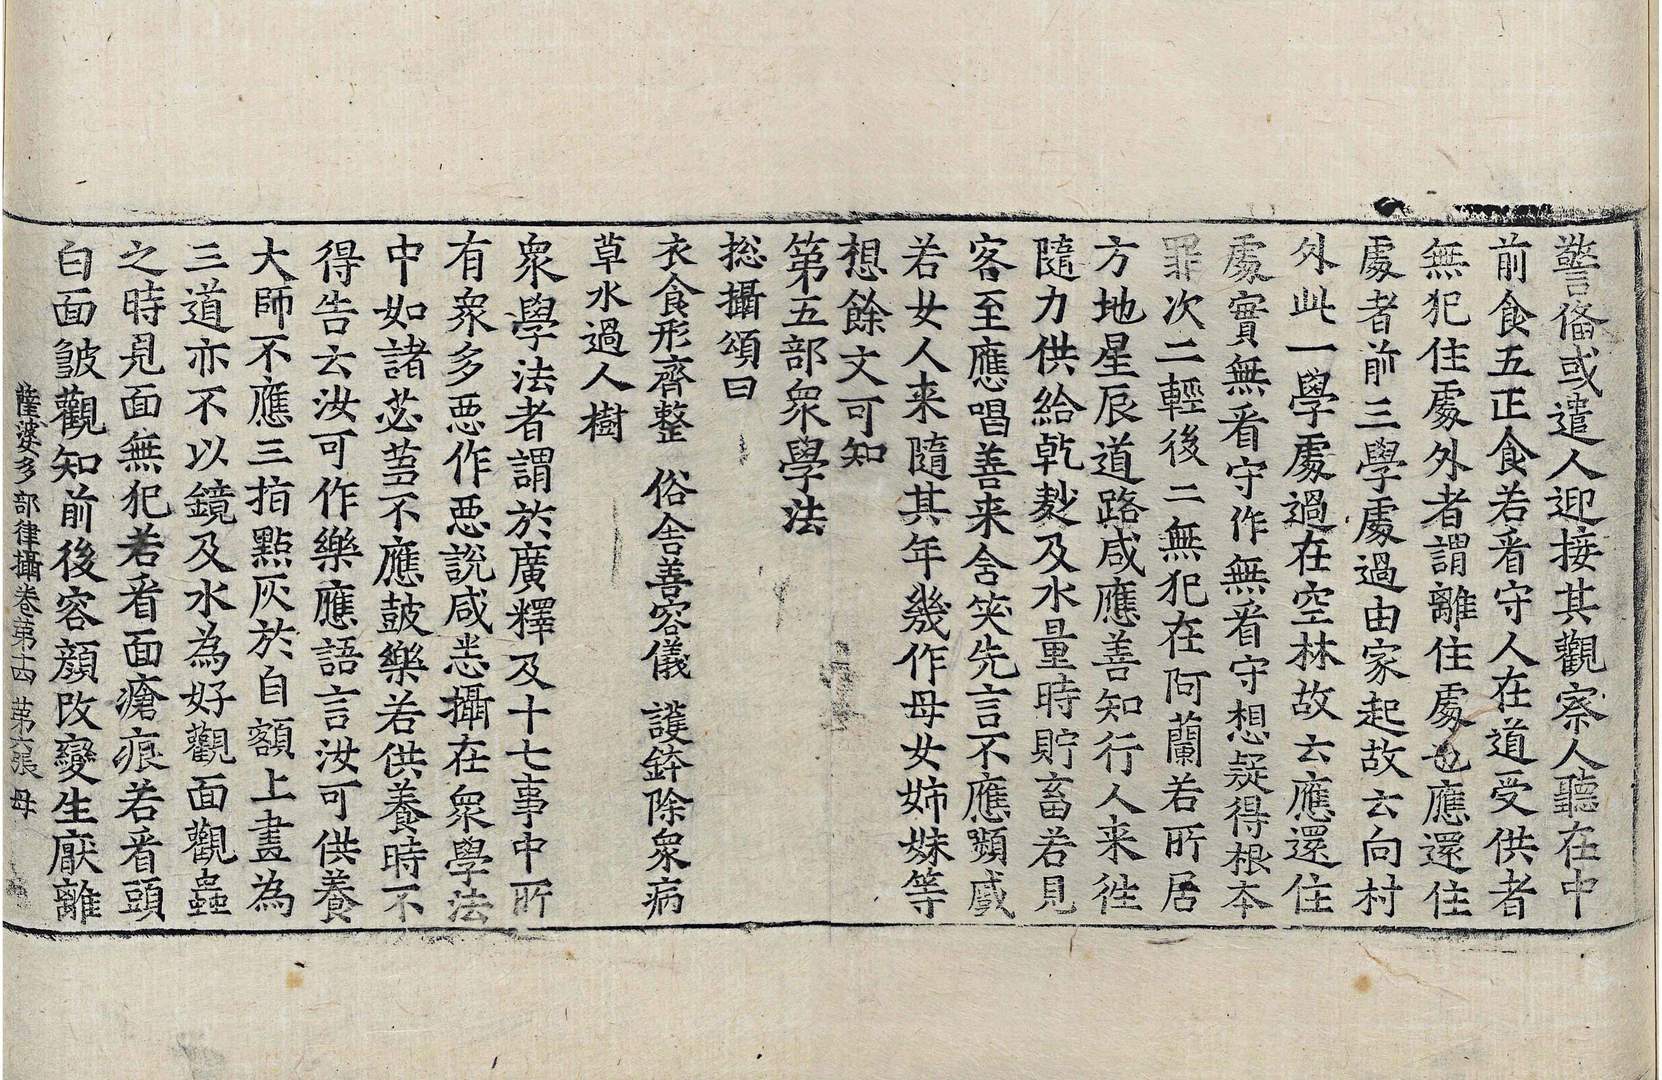 警俻或遣人迎接其觀察人聽在中
前食五正食若㸔守人在道受供者
無犯住處外者謂離住處也應還住
處者前三學處過由家起故云向村
外此一學處過在空林故云應還住
處實無㸔守作無㸔守想疑得根本
罪次二輕後二無犯在阿蘭若所居
方地星辰道路咸應善知行人来徃
隨力供給乾麨及水量時貯畜若見
客至應唱善来含笑先言不應顰慼
若女人来隨其年幾作母女姉妹等
想餘文可知
第五部衆學法
捴攝頌曰
衣食形齊整 俗舍善容儀 護鉢除衆病
草水過人樹
衆學法者謂於廣釋及十七事中所
有衆多惡作惡說咸悉攝在衆學法
中如諸苾芻不應鼓樂若供養時不
得告云汝可作樂應語言汝可供養
大師不應三指點灰於自額上畫為
三道亦不以鏡及水為好觀面觀蟲
之時見面無犯若㸔面瘡痕若㸔頭
白面皺觀知前後容顏改變生厭離
薩婆多部律攝卷第十四 第六張 母